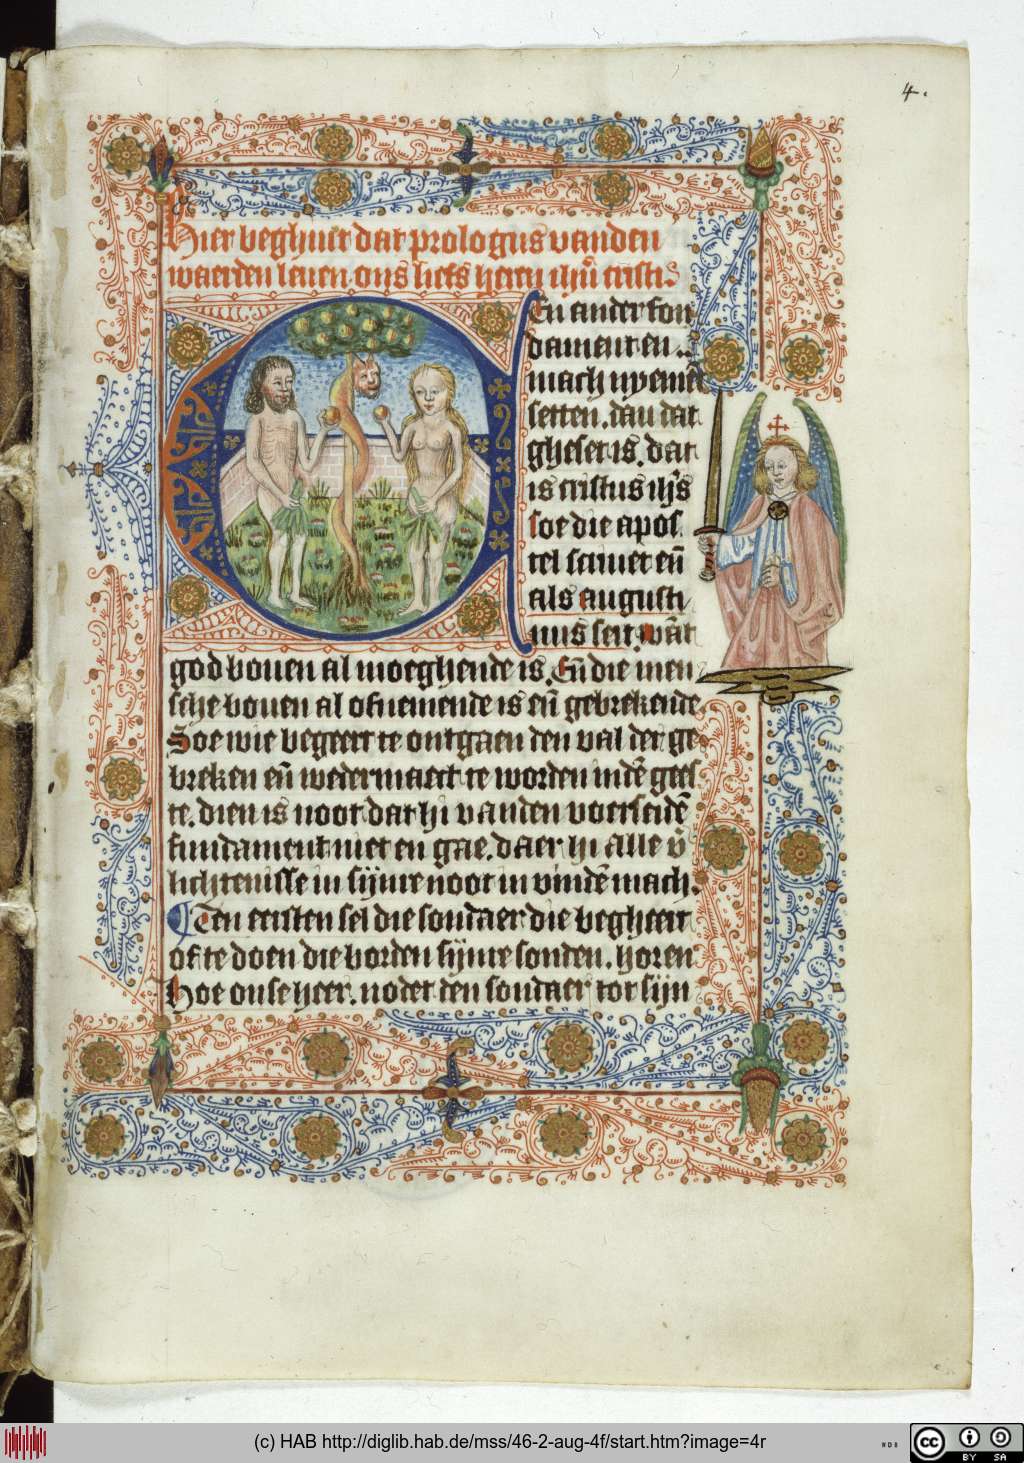 4.
Hier beghint dat prologus vanden
waerden leuen ons liefs heren ihū cristi.
En ander fon
dament en
mach nyemēt
setten. dan dat
gheset is. dat
is cristus ihs̄
soe die apos
tel scriuet eñ
als augusti
nus seit. wāt
god bouen al moeghende is. Eñ die men
sche bouen al ofnemende is eñ gebrekende
Soe wie begeert te ontgaen den val der ge
breken eñ wedermaect te worden indē gees
te. dien is noot dat hi vanden voerseidē
fundament niet en gae. daer hi alle v̄
lichtenisse in sijnre noot in vindē mach.
Ten eersten sel die sondaer die begheert
of te doen die borden sijnre sonden. horen
hoe onse heer. nodet den sondaer tot sijn
(c) HAB http://diglib.hab.de/mss/46-2-aug-4f/start.htm?image=4r
WDB
cc
BY SA